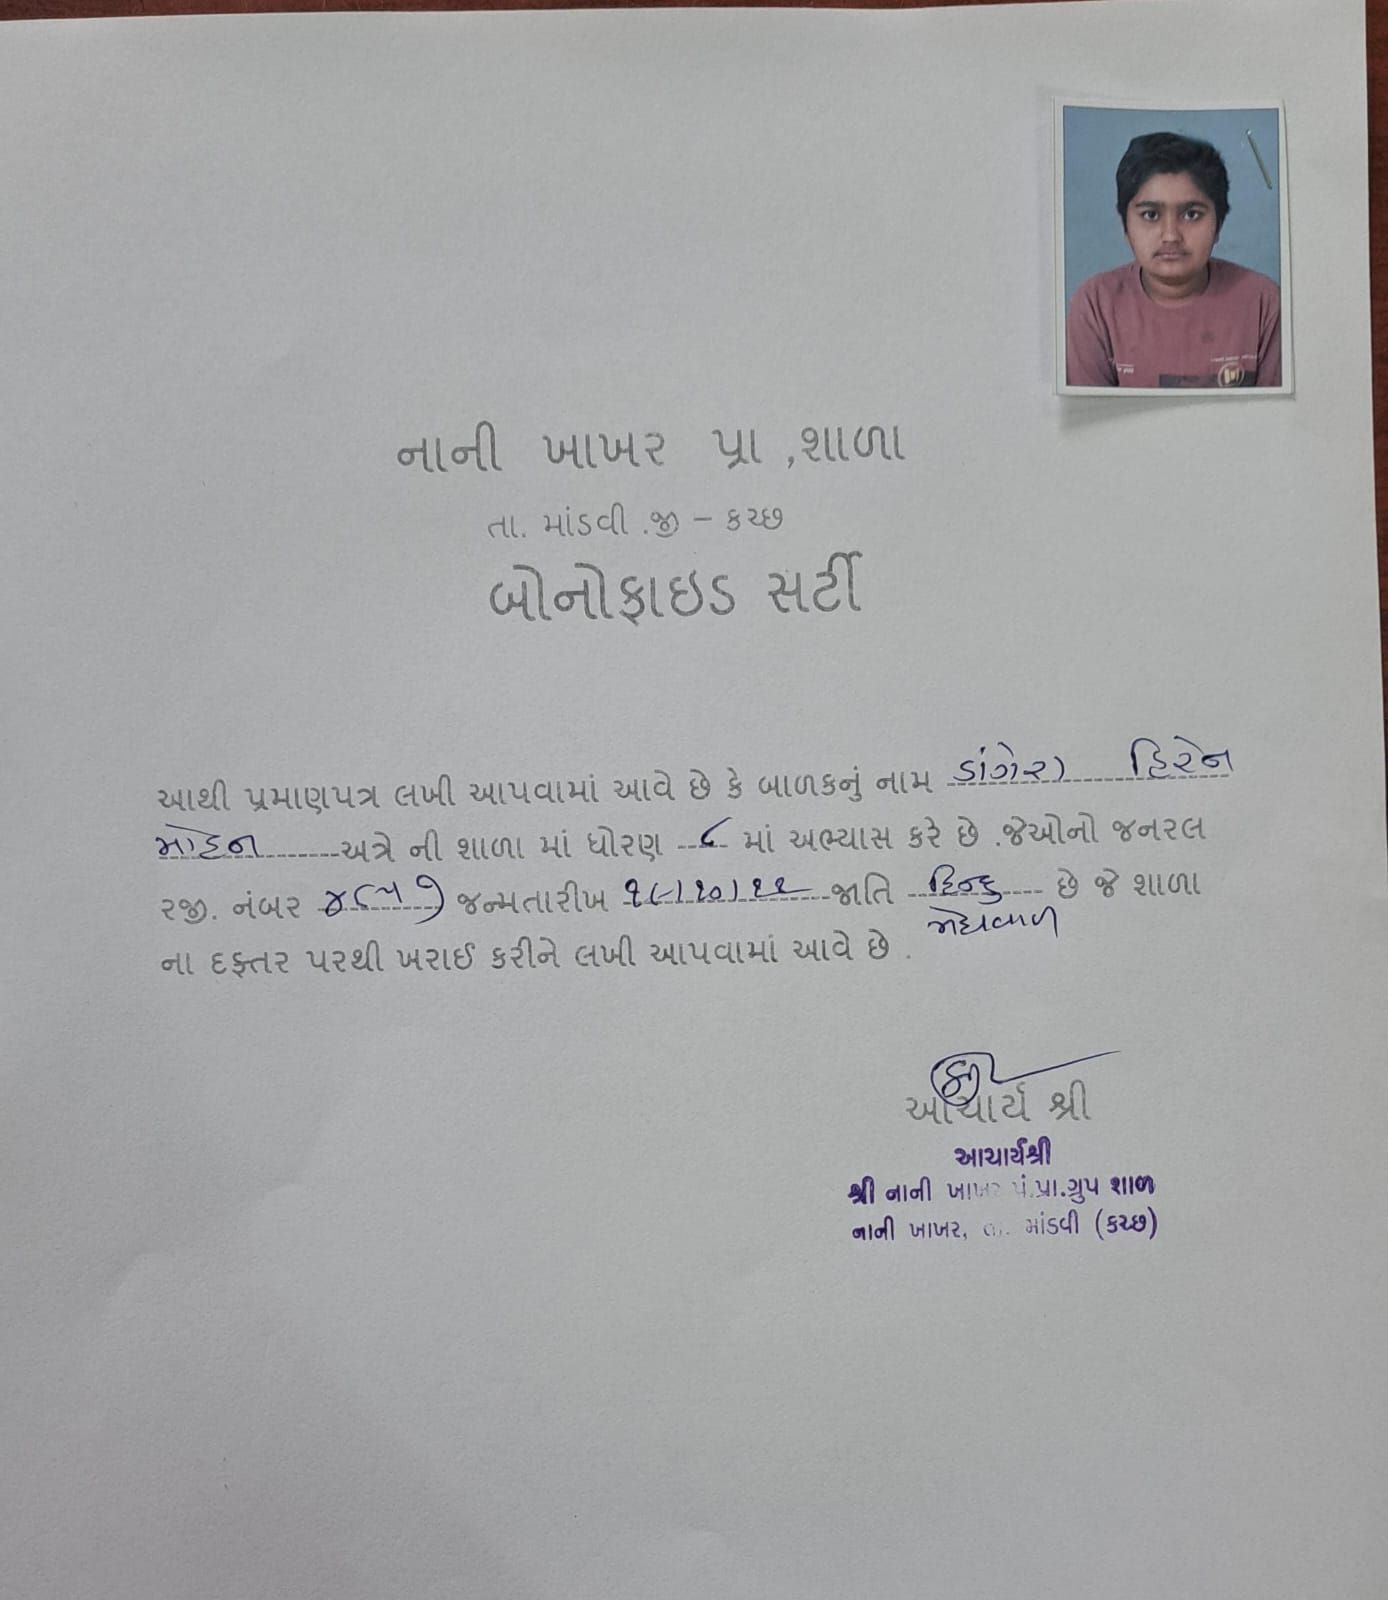 નાની ખાખર પ્રા ,શાળા
તા. માંડવી .જી – કચ્છ
બોનોફાઇડ સર્ટી
આથી પ્રમાણપત્ર લખી આપવામાં આવે છે કે બાળકનું નામ ડાંગેરા હિરેન
મોહન અત્રે ની શાળા માં ધોરણ ૮ માં અભ્યાસ કરે છે .જેઓનો જનરલ
રજી. નંબર જન્મતારીખ ૧૮/૧૦/૧૧ જાતિ હિન્દુ છે જે શાળા
મેઘવાળ
ના દફતર પરથી ખરાઈ કરીને લખી આપવામાં આવે છે .
આચાર્ય શ્રી
આચાર્યશ્રી
શ્રી નાની ખાખર પં.પ્રા.ગ્રુપ શાળા
નાની ખાખર, તા. માંડવી (કચ્છ)